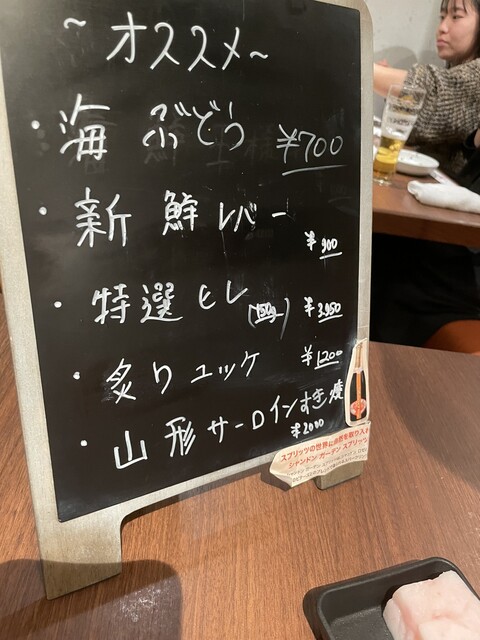 ~オススメ~
・海ぶどう ¥700
・新鮮レバー
¥900
・特選ヒレ (150g) ¥3,950
・炙りユッケ ¥1200
・山形サーロインすき焼
¥2000
スプリッツの世界に自然を取り入れ
シャンドン ガーデン スプリッツ